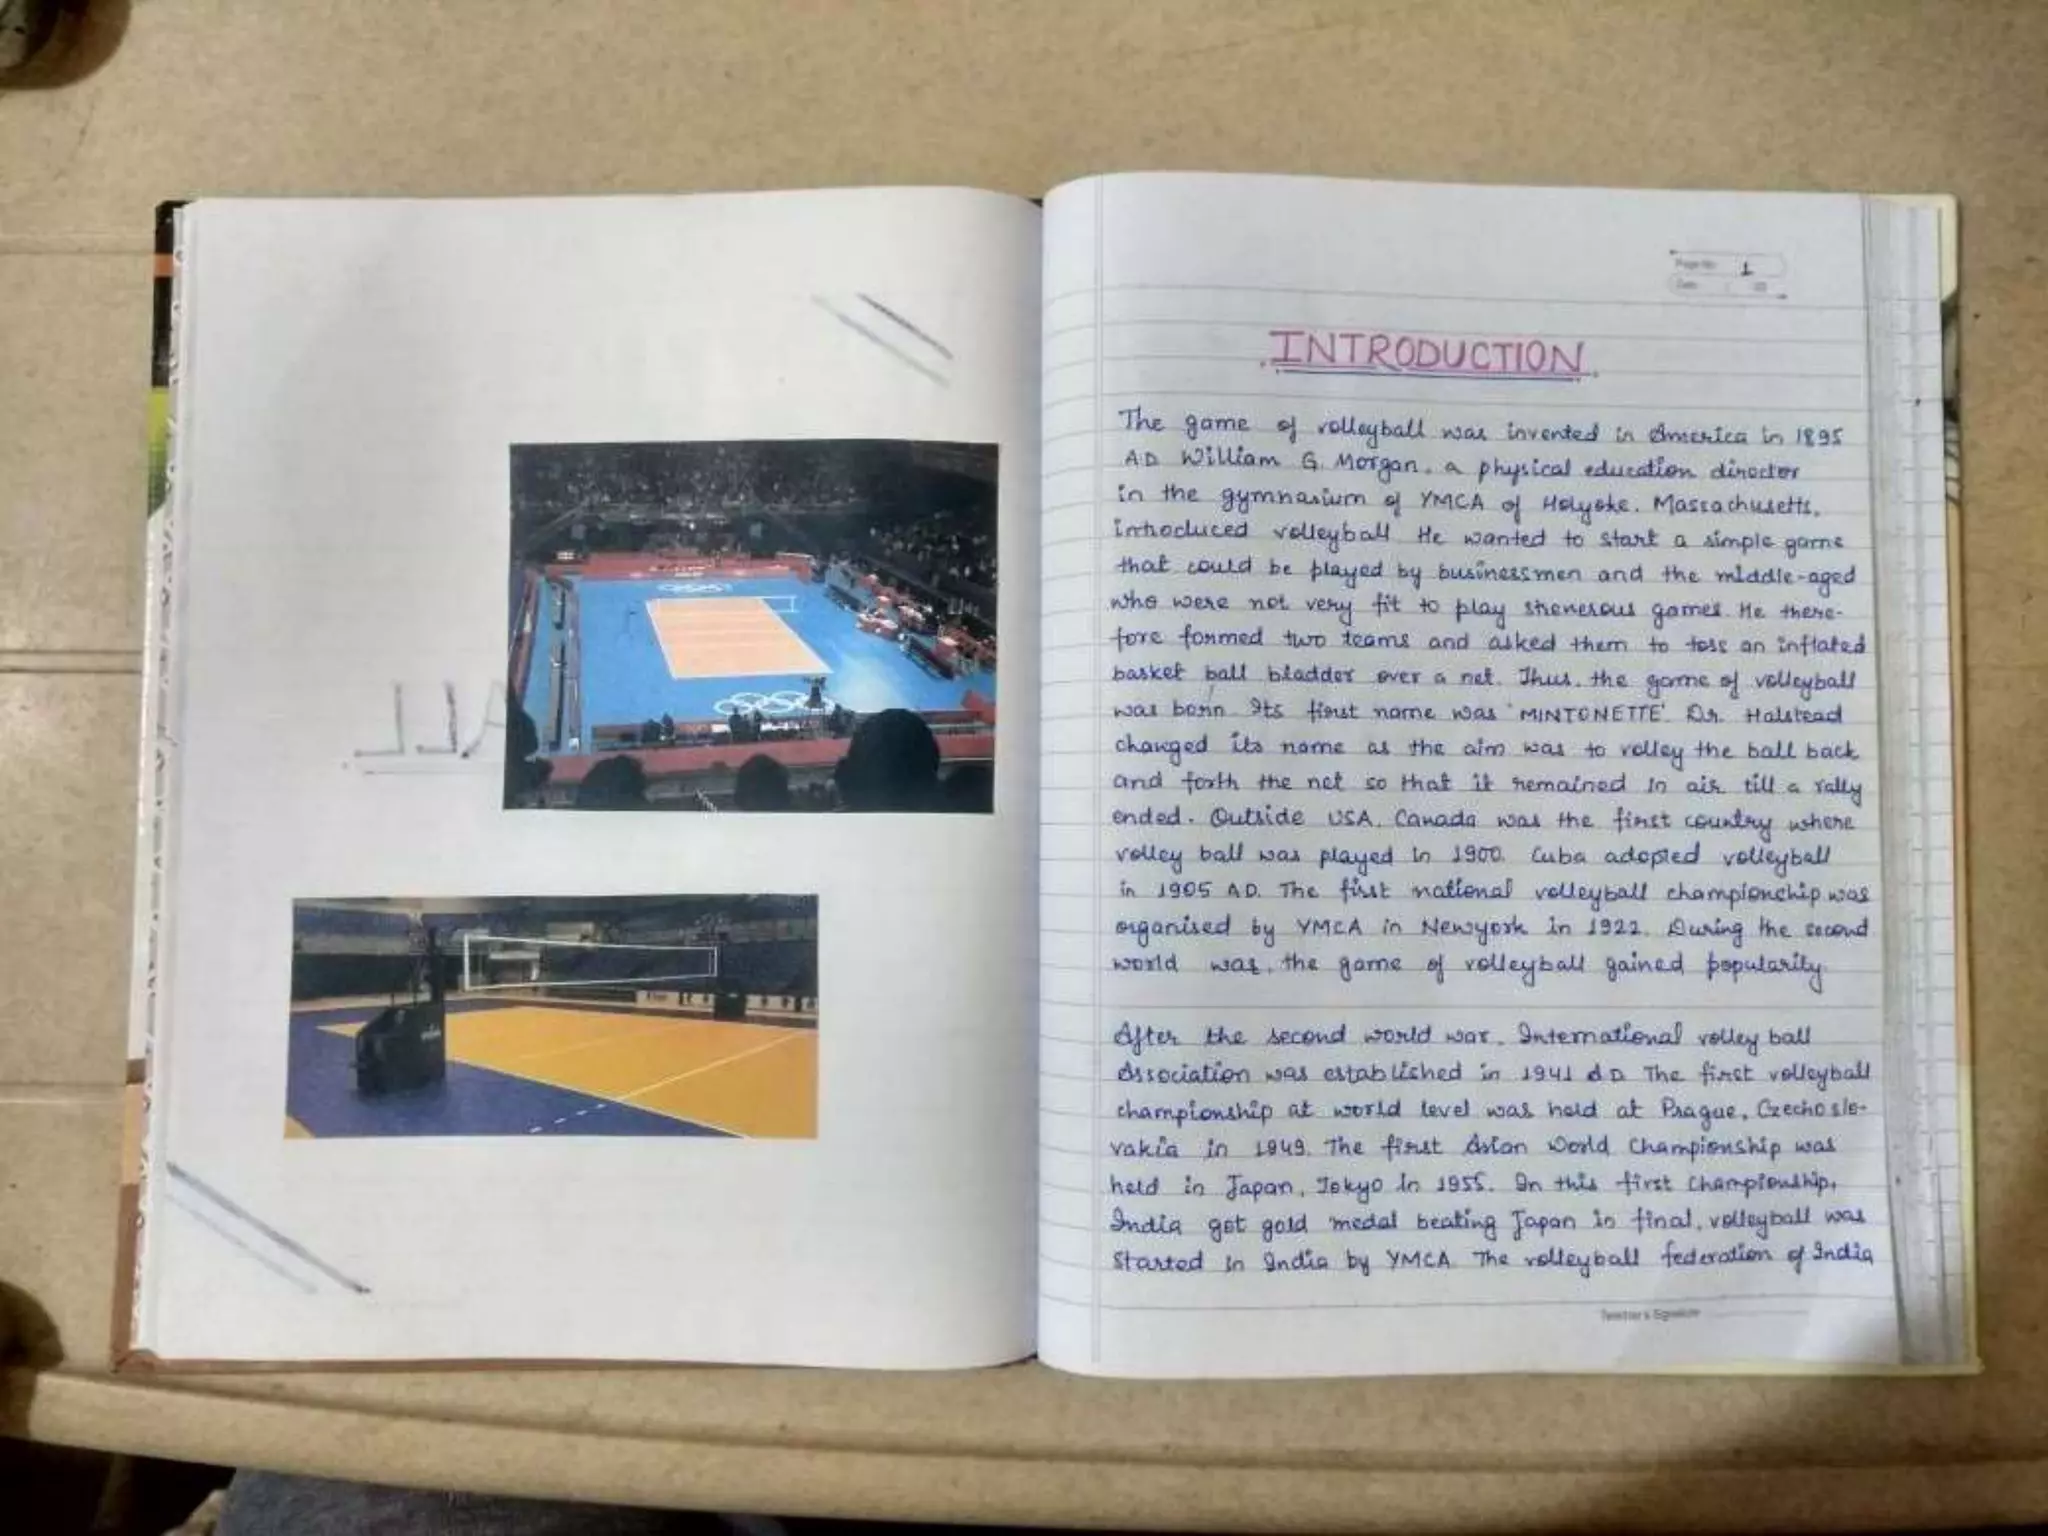 ALL
Page No. 1
Date
INTRODUCTION
The game of volleyball was invented in America in 1895
A.D. William G. Morgan, a physical education director
in the gymnasium of YMCA of Holyoke, Massachusetts,
introduced volleyball. He wanted to start a simple game
that could be played by businessmen and the middle-aged
who were not very fit to play stenerous games. He there-
fore formed two teams and asked them to toss an inflated
basket ball bladder over a net. Thus, the game of volleyball
was born. Its first name was 'MINTONETTE'. Dr. Halstead
changed its name as the aim was to volley the ball back
and forth the net so that it remained in air till a rally
ended. Outside USA, Canada was the first country where
volley ball was played in 1900. Cuba adopted volleyball
in 1905 A.D. The first national volleyball championchip was
organised by YMCA in Newyork in 1922. During the second
world war, the game of volleyball gained popularity.
After the second world war, International volley ball
Association was established in 1941 A.D. The first volleyball
championship at world level was held at Prague, Czechoslo-
vakia in 1949. The first Asian World Championship was
held in Japan, Tokyo in 1955. In this first Championship,
India got gold medal beating Japan in final, volleyball was
started in India by YMCA. The volleyball federation of India
Teacher's Signature